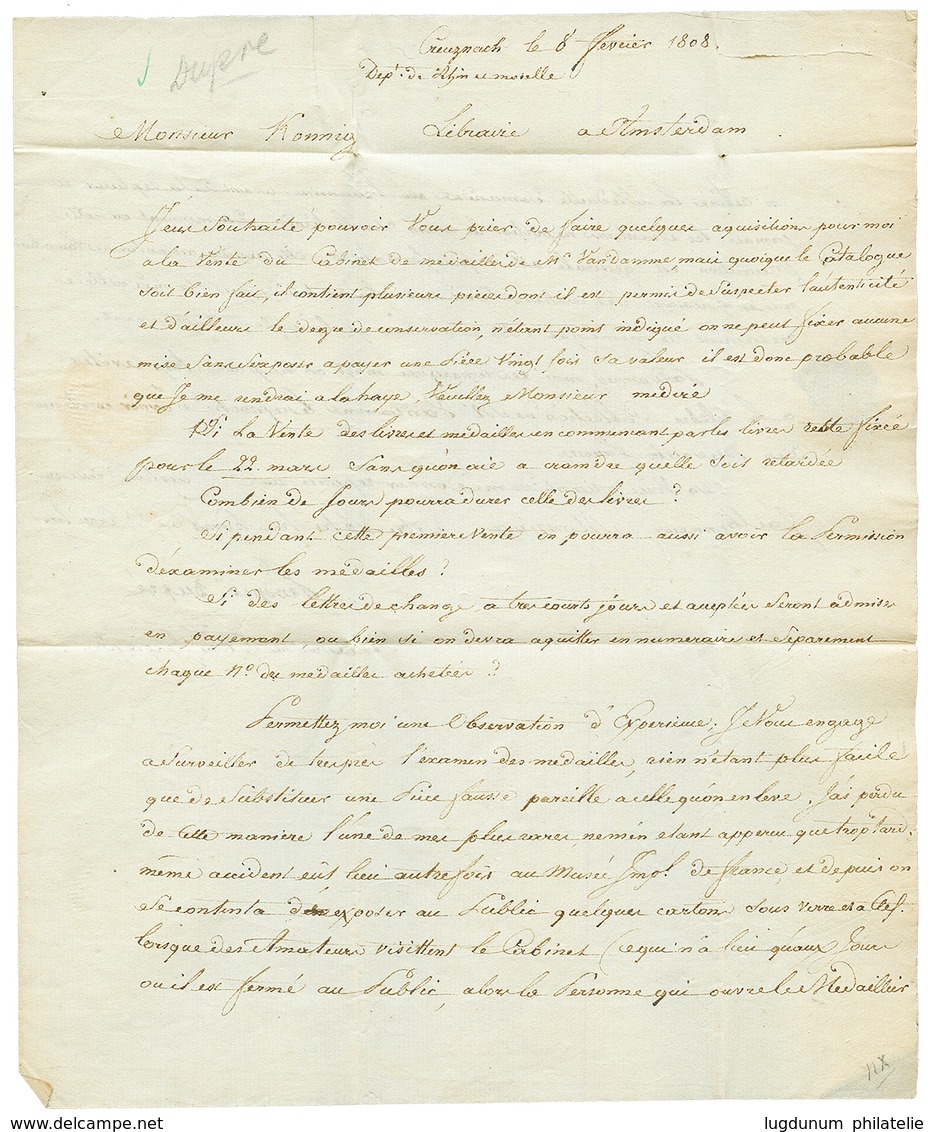 Dupré
Creuznach le 8 fevrier 1808.
Depᵗ. de Rhin et moselle
Monsieur Konnig Libraire a Amsterdam.
J'eus Souhaité pouvoir Vous prier de faire quelques aquisitions pour moi
a la Vente du Cabinet de medailles de Mʳ Van Damme, mais quoique le Catalogue
soit bien fait, il contient plusieurs pieces dont il est permis de Suspecter l'autenticité
et d'ailleurs le degre de conservation, n'etant point indiqué on ne peut fixer aucune
mise Sans s'exposer a payer une Piéce Vingt fois Sa valeur il est donc probable
que Je me rendrai a la haye. Veuillez Monsieur me dire
Si La Vente des livres et medailles en commençant par les livres reste fixée
pour le 22. mars Sans qu'on aie a craindre qu'elle Soit retardée
Combien de Jours pourra durer celle des livres ?
Si pendant cette premiere Vente on pourra aussi avoir la Permission
d'examiner les medailles ?
Si des lettres de change a tres courts jours et acceptées Seront admises
en payement, ou bien si on devra aquitter en numeraire et Séparement
chaque Nº. des medailles achetées ?
Permettez moi une Observation d'Experience. Je Vous engage
a Surveiller de tres près l'examen des medailles, rien n'etant plus facile
que de Substituer une Piéce fausse pareille a celle qu'on enleve. J'ai perdu
de cette maniere l'une de mes plus rares, ne m'en etant apperçu que trop tard.
même accident eût lieu autrefois au Musée Impˡ. de france, et depuis on
Se contenta d'exposer au Public quelques cartons Sous verre et a Clef.
lorsque des Amateurs visittent le Cabinet (ce qui n'a lieu qu'aux Jours
ou il est fermé au Public, alors la Personne qui ouvre le Medaillier
lugdunum philatelie